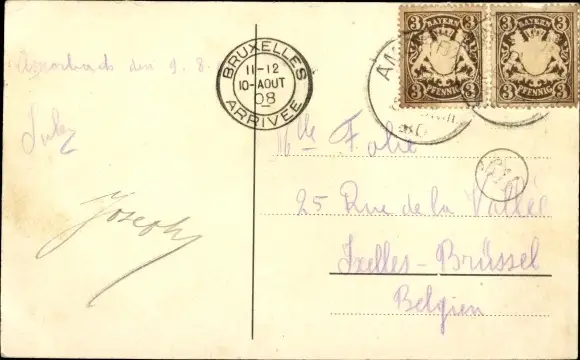 den 9. 8.
Joseph
BRUXELLES
11-12
10-AOUT
08
ARRIVÉE
3 BAYERN 3
3 PFENNIG 3
3 BAYERN 3
3 PFENNIG 3
Mlle Folie
25 Rue de la Vallée
Ixelles-Brüssel
Belgien